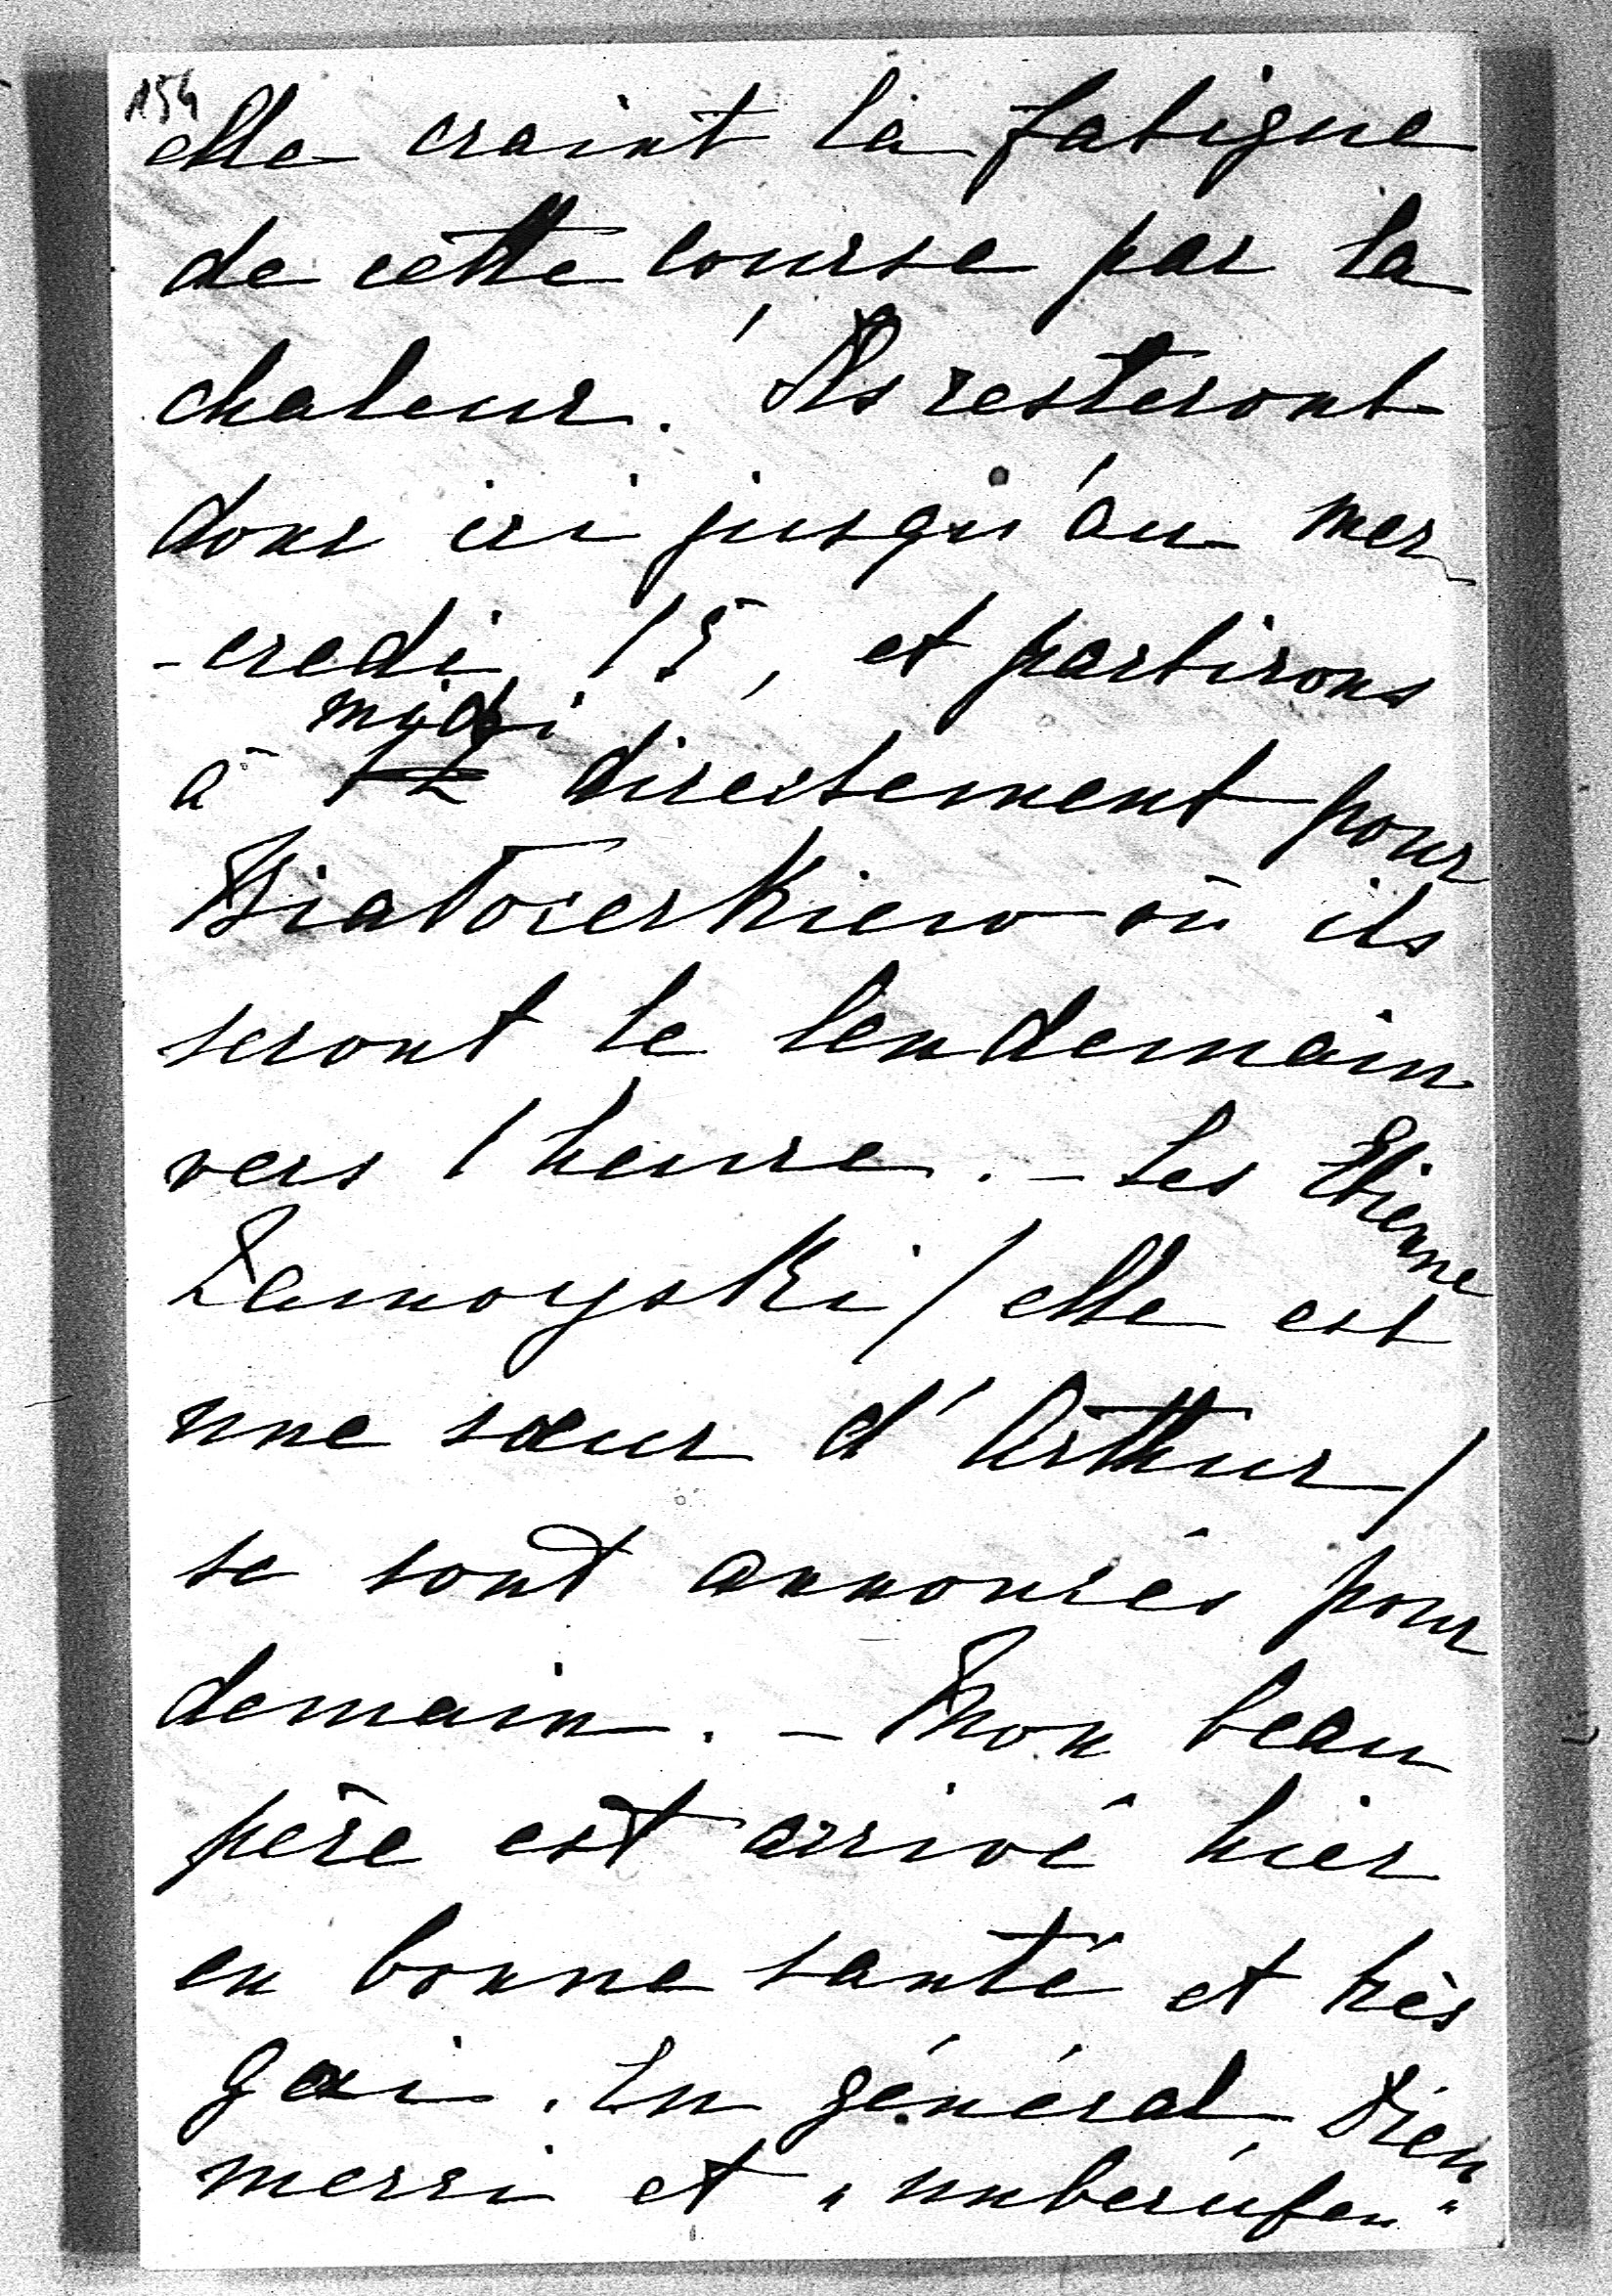 154
elle craint la fatigue
de cette course par la
chaleur. Ils resteront
donc ici jusqu'au mer
-credi 15, et partirons
midi
à 12 directement pour
Białocerkiew où ils
seront le lendemain
vers 1 heure. - Les Etienne
Zamoyski / elle est
une sœur d'Arthur /
se sont annoncés pour
demain. - Mon beau
père est arrivé hier
en bonne santé et très
gai. En général Dieu
merci et "unberufen"